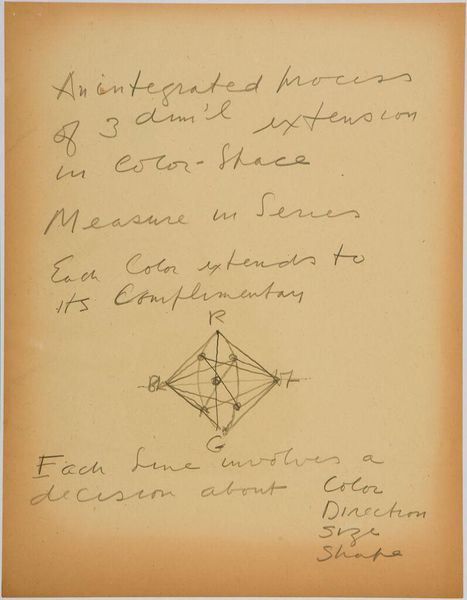 An integrated process
of 3 dim'l extension
in Color-Space
Measure in Series
Each Color extends to
its Complimentary
R
BL
G
Each line involves a
decision about Color
Direction
Size
Shape